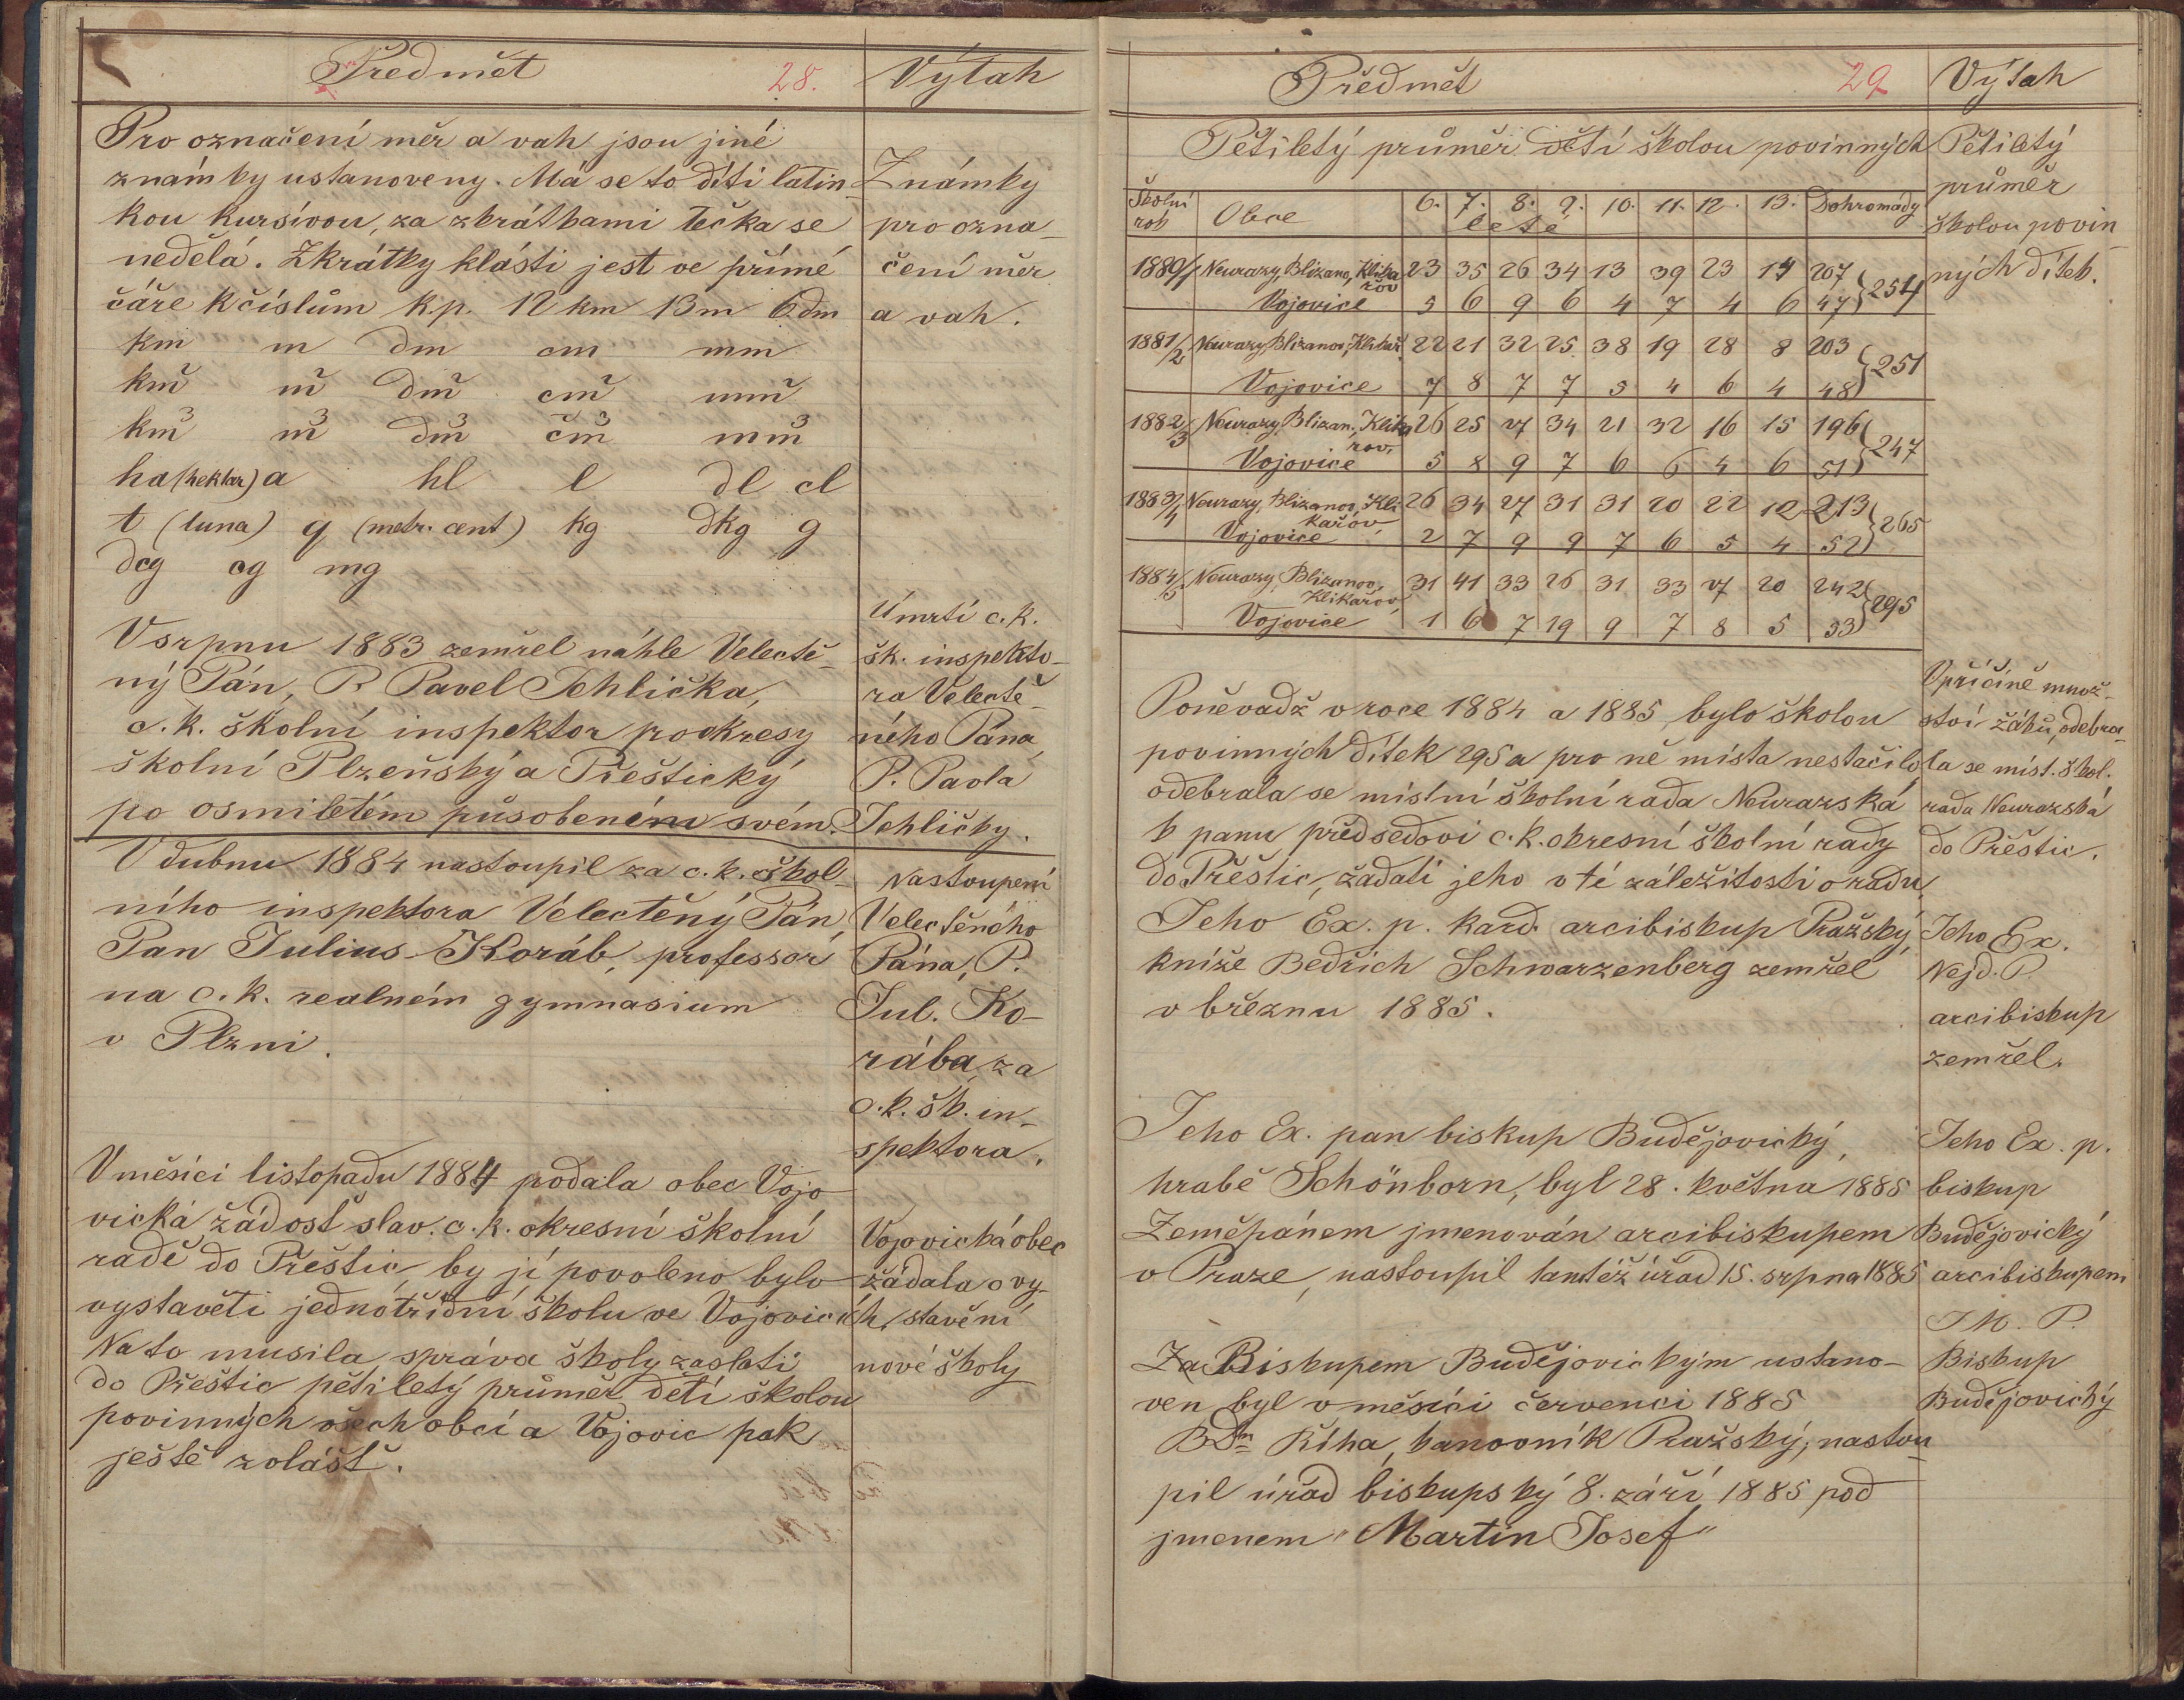 Předmět 28. Výtah
Pro označení měr a vah jsou jiné
známky ustanoveny. Má se to díti latin-
kou kursivou, za zkrátkami tečka se
nedělá. Zkrátky klásti jest ve přímé
čáře k číslům k.p. 12 km 13 m 6 dm
km m dm cm mm
km² m² dm² cm² mm²
km³ m³ dm³ cm³ mm³
ha (hektar) a hl l dl cl
t (tuna) q (metr. cent) kg dkg g
dcg cg mg
Známky
pro ozna-
čení měr
a vah.
V srpnu 1883 zemřel náhle Velectě-
ný Pán, P. Pavel Jehlička,
c. k. školní inspektor pro okresy
školní Plzeňský a Přeštický
po osmiletém působení svém.
Úmrtí c. k.
šk. inspekto-
ra Velectě-
ného Pána
P. Pavla
Jehličky.
V dubnu 1884 nastoupil za c. k. škol-
ního inspektora Velectěný Pán,
Pan Julius Koráb, professor
na c. k. realném gymnasium
v Plzni.
Nastoupení
Velectěného
Pána, P.
Jul. Ko-
rába, za
c. k. šk. in-
spektora.
V měsíci listopadu 1884 podala obec Vojo-
vická žádost slav. c. k. okresní školní
radě do Přeštic, by jí povoleno bylo
vystavěti jednotřídní školu ve Vojovicích
Na to musila správa školy zaslati
do Přeštic pětiletý průměr dětí školou
povinných všech obcí a Vojovic pak
ještě zvlášť.
Vojovická obec
žádala o vy-
stavění
nové školy
Předmět 29 Výtah
Pětiletý průměr dětí školou povinných
Pětiletý
průměr
školou povin-
ných dítek.
Školní rok Obce 6. 7. 8. 9. 10. 11. 12. 13. Dohromady
leté
1880/1 Neurazy, Blizanov, Klika- 23 35 26 34 13 39 23 14 207
řov
Vojovice 5 6 9 6 4 7 4 6 47 } 254
1881/2 Neurazy, Blizanov, Klikař. 22 21 32 25 38 19 28 8 203
Vojovice 7 8 7 7 5 4 6 4 48 } 251
1882/3 Neurazy, Blizan., Klika- 26 25 27 34 21 32 16 15 196
řov,
Vojovice 5 8 9 7 6 6 4 6 51 } 247
1883/4 Neurazy, Blizanov, Kli- 26 34 27 31 31 20 22 12 213
kařov,
Vojovice 2 7 9 9 7 6 5 4 52 } 265
1884/5 Neurazy, Blizanov, 31 41 33 26 31 33 27 20 242
Klikařov,
Vojovice 1 6 7 19 9 7 8 5 53 } 295
Poněvadž v roce 1884 a 1885 bylo školou
povinných dítek 295 a pro ně místa nestačilo
odebrala se místní školní rada Neurazská
k panu předsedovi c. k. okresní školní rady
do Přeštic, žádati jeho v té záležitosti o radu.
V příčině množ-
ství žáků, odebra-
la se míst. škol.
rada Neurazská
do Přeštic.
Jeho Ex. p. kard. arcibiskup Pražský,
kníže Bedřich Schwarzenberg zemřel
v březnu 1885.
Jeho Ex.
Nejd. P.
arcibiskup
zemřel.
Jeho Ex. pan biskup Budějovický,
hrabě Schönborn, byl 28. května 1885
Zeměpánem jmenován arcibiskupem
v Praze, nastoupil tamtéž úřad 15. srpna 1885
Jeho Ex. p.
biskup
Budějovický
arcibiskupem
Za Biskupem Budějovickým ustano-
ven byl v měsíci červenci 1885
Říha, kanovník Pražský; nastou-
pil úřad biskupský 8. září 1885 pod
jmenem "Martin Josef"
J M. P.
Biskup
Budějovický